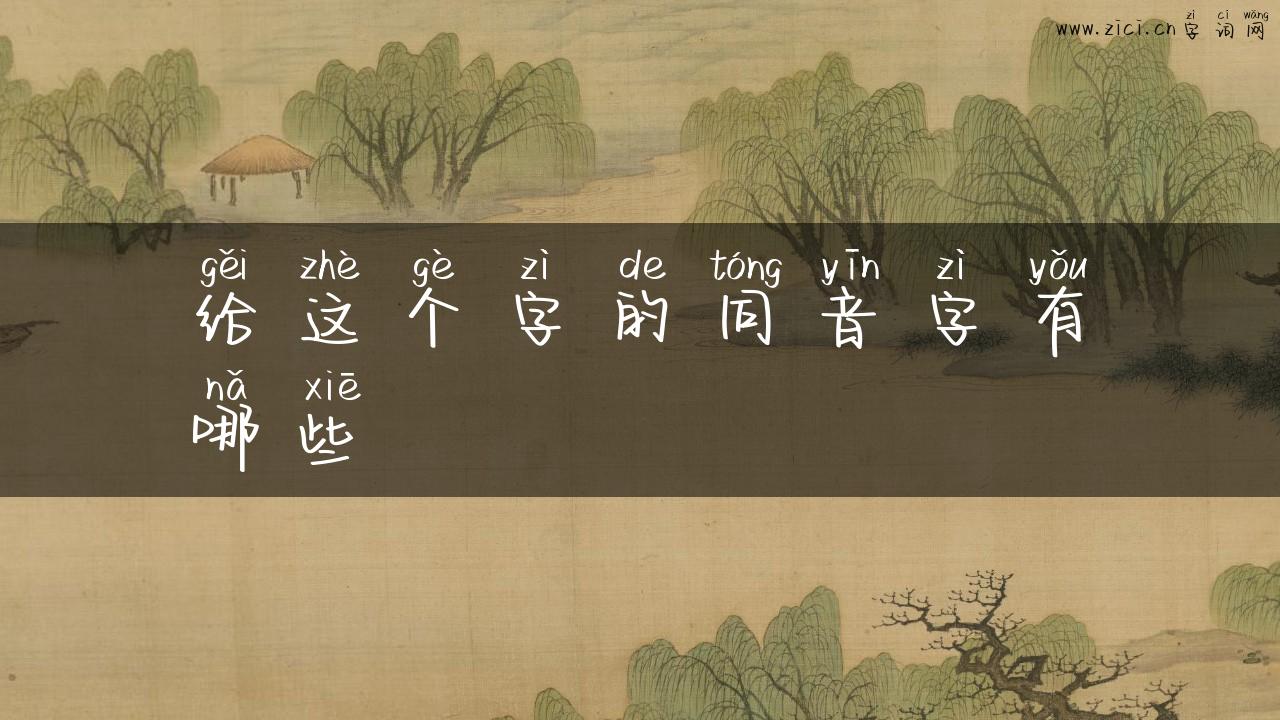 zì cí wǎng
www.zici.cn 字 词 网
gěi zhè gè zì de tóng yīn zì yǒu
给 这 个 字 的 同 音 字 有
nǎ xiē
哪 些